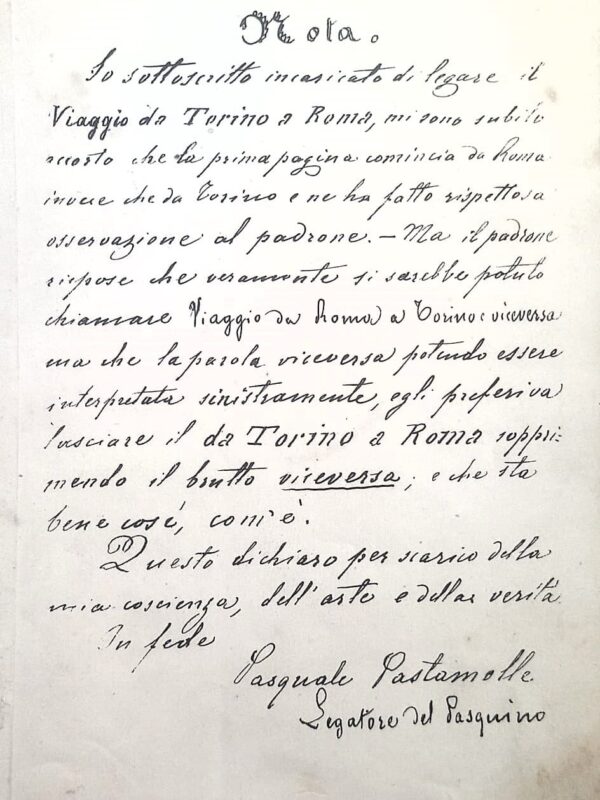 Nota.
Io sottoscritto incaricato di legare il
Viaggio da Torino a Roma, mi sono subito
accorto che la prima pagina comincia da Roma
invece che da Torino e ne ho fatto rispettosa
osservazione al padrone. — Ma il padrone
rispose che veramente si sarebbe potuto
chiamare Viaggio da Roma a Torino e viceversa
ma che la parola viceversa potendo essere
interpretata sinistramente, egli preferiva
lasciare il da Torino a Roma soppri=
mendo il brutto viceversa; e che sta
bene così, com'è.
Questo dichiaro per scarico della
mia coscienza, dell'arte e della verità.
In fede
Pasquale Pastamolle
Legatore del Pasquino